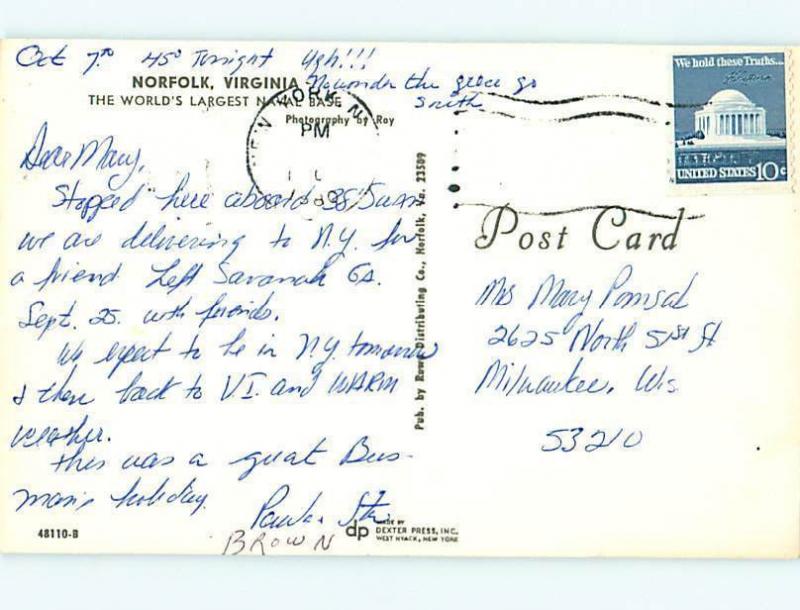 Oct 7th 45° Tonight Ugh!!!
No wonder the geese go
South
NORFOLK, VIRGINIA
THE WORLD'S LARGEST NAVAL BASE
Photography by Roy
NEW YORK, N.
PM
Dear Mary,
Stopped here aboard 38'
we are delivering to N.Y. for
a friend Left Savanah Ga.
Sept. 25. with friends.
We expect to be in N.Y. tomorrow
& then back to V.I. and WARM
weather.
This was a great Bus-
man's holiday.
Paul &
BROWN
48110-B
dp MADE BY
DEXTER PRESS, INC.
WEST NYACK, NEW YORK
Pub. by Rowe Distributing Co., Norfolk, Va. 23509
We hold these Truths...
UNITED STATES 10c
Post Card
Mrs Mary Pomsal
2625 North 51st St
Milwaukee, Wis.
53210